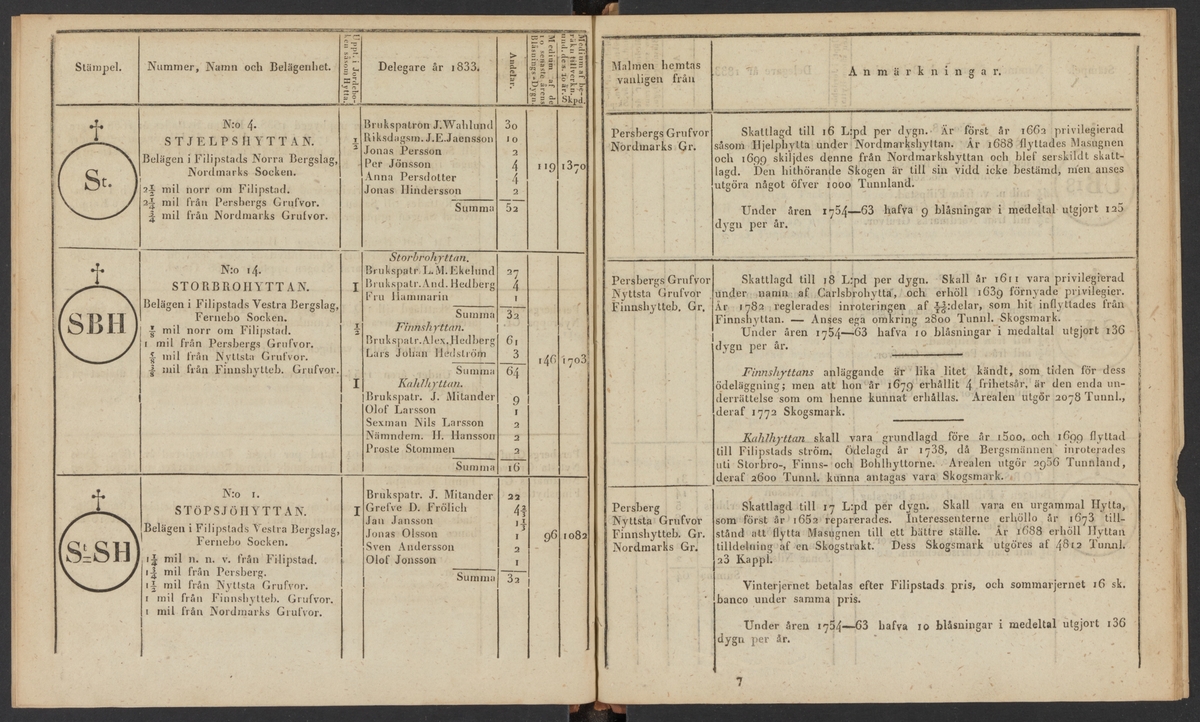 Stämpel.
Nummer, Namn och Belägenhet.
Uppt. i Jordebo-
ken såsom Hytta.
Delegare år 1833.
Andelar.
Medium af de
10 senaste årens
Blåsnings-Dygn.
Medium af be-
räkn tillverkn.
und. des. 10 år.
Skpd.
St.
N:o 4.
STJELPSHYTTAN.
Belägen i Filipstads Norra Bergslag,
Nordmarks Socken.
2½ mil norr om Filipstad.
2¼ mil från Persbergs Grufvor.
¾ mil från Nordmarks Grufvor.
½
Brukspatron J. Wahlund 30
Riksdagsm. J. E. Jaensson 10
Jonas Persson 2
Per Jönsson 4
Anna Persdotter 4
Jonas Hindersson 2
Summa 52
119 1370
SBH
N:o 14.
STORBROHYTTAN.
Belägen i Filipstads Vestra Bergslag,
Fernebo Socken.
mil norr om Filipstad.
1 mil från Persbergs Grufvor.
mil från Nyttsta Grufvor.
mil från Finnshytteb. Grufvor.
Storbrohyttan.
Brukspatr L. M. Ekelund 27
1 Brukspatr. And. Hedberg 4
Fru Hammarin 1
Summa 32
½ Finnshyttan.
Brukspatr. Alex. Hedberg 61
Lars Johan Hedström 3
Summa 64
146 1703
1 Kahlhyttan.
Brukspatr. J. Mitander 9
Olof Larsson 1
Sexman Nils Larsson 2
Nämndem. H. Hansson 2
Proste Stommen 2
Summa 16
St=SH
N:o 1.
STÖPSJÖHYTTAN.
Belägen i Filipstads Vestra Bergslag,
Fernebo Socken.
1¼ mil n. n. v. från Filipstad.
1¾ mil från Persberg.
1½ mil från Nyttsta Grufvor.
1 mil från Finnshytteb. Grufvor.
1 mil från Nordmarks Grufvor.
Brukspatr. J. Mitander 22
1 Grefve D. Frölich 4⅔
Jan Jansson 1⅓
Jonas Olsson 1
Sven Andersson 2
Olof Jonsson 1
Summa 32
96 1082
Malmen hemtas
vanligen från
Anmärkningar.
Persbergs Grufvor
Nordmarks Gr.
Skattlagd till 16 L:pd per dygn. Är först år 1662 privilegierad
såsom Hjelphytta under Nordmarkshyttan. År 1688 flyttades Masugnen
och 1699 skiljdes denne från Nordmarkshyttan och blef serskildt skatt-
lagd. Den hithörande Skogen är till sin vidd icke bestämd, men anses
utgöra något öfver 1000 Tunnland.
Under åren 1754—63 hafva 9 blåsningar i medeltal utgjort 125
dygn per år.
Persbergs Grufvor
Nyttsta Grufvor
Finnshytteb. Gr.
Skattlagd till 18 L:pd per dygn. Skall år 1611 vara privilegierad
under namn af Carlsbrohytta, och erhöll 1639 förnyade privilegier.
År 1782 reglerades inroteringen af :delar, som hit inflyttades från
Finnshyttan. — Anses ega omkring 2800 Tunnl. Skogsmark.
Under åren 1754—63 hafva 10 blåsningar i medaltal utgjort 136
dygn per år.
Finnshyttans anläggande är lika litet kändt, som tiden för dess
ödeläggning; men att hon år 1679 erhållit 4 frihetsår, är den enda un-
derrättelse som om henne kunnat erhållas. Arealen utgör 2078 Tunnl.,
deraf 1772 Skogsmark.
Kahlhyttan skall vara grundlagd före år 1500, och 1699 flyttad
till Filipstads ström. Ödelagd år 1738, då Bergsmännen inroterades
uti Storbro-, Finns- och Bohlhyttorne. Arealen utgör 2956 Tunnland,
deraf 2600 Tunnl. kunna antagas vara Skogsmark.
Persberg
Nyttsta Grufvor
Finnshytteb. Gr.
Nordmarks Gr.
Skattlagd till 17 L:pd per dygn. Skall vara en urgammal Hytta,
som först år 1652 reparerades. Interessenterne erhöllo år 1673 till-
stånd att flytta Masugnen till ett bättre ställe. År 1688 erhöll Hyttan
tilldelning af en Skogstrakt. Dess Skogsmark utgöres af 4812 Tunnl.
23 Kappl.
Vinterjernet betalas efter Filipstads pris, och sommarjernet 16 sk.
banco under samma pris.
Under åren 1754—63 hafva 10 blåsningar i medeltal utgjort 136
dygn per år.
7